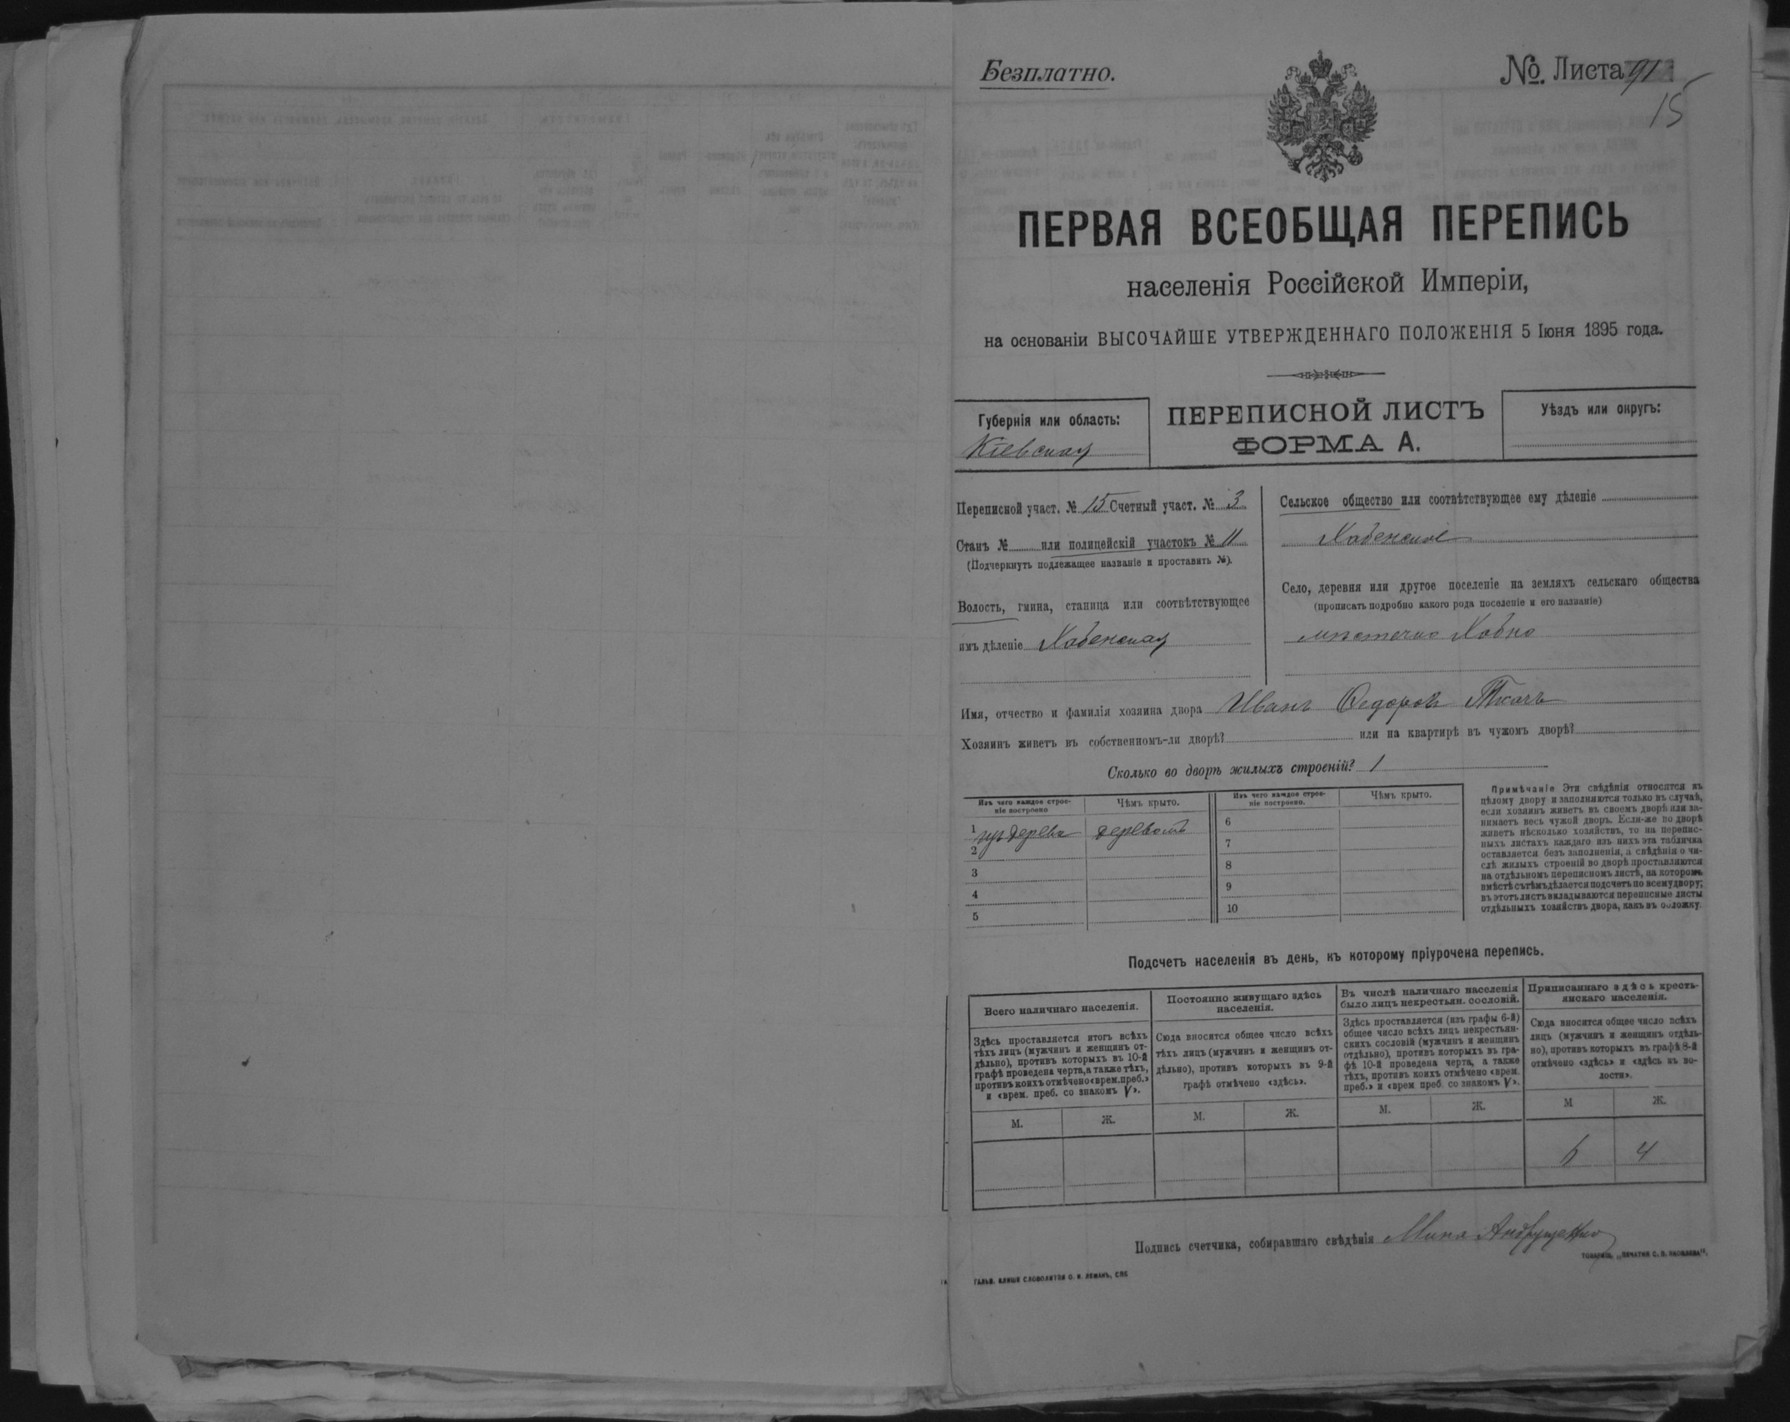 Безплатно.
№. Листа 91
15
ПЕРВАЯ ВСЕОБЩАЯ ПЕРЕПИСЬ
населенія Россійской Имперіи,
на основаніи ВЫСОЧАЙШЕ УТВЕРЖДЕННАГО ПОЛОЖЕНІЯ 5 Іюня 1895 года.
Губернія или область:
Кіевская
ПЕРЕПИСНОЙ ЛИСТЪ
ФОРМА А.
Уѣздъ или округъ:
Переписной участ. № 15 Счетный участ. № 3
Станъ № или полицейскій участокъ № 11
(Подчеркнуть подлежащее названіе и проставить №).
Волость, гмина, станица или соотвѣтствующее
имъ дѣленіе Хабенская
Сельское общество или соотвѣтствующее ему дѣленіе
Хабенское
Село, деревня или другое поселеніе на земляхъ сельскаго общества
(прописать подробно какого рода поселеніе и его названіе)
мѣстечко Хабно
Имя, отчество и фамилія хозяина двора Иванъ Федоровъ Ткачъ
Хозяинъ живетъ въ собственномъ-ли дворѣ? или на квартирѣ въ чужомъ дворѣ?
Сколько во дворѣ жилыхъ строеній? 1
Изъ чего каждое строе-
ніе построено
Чѣмъ крыто.
1 изъ дерева деревомъ
2
3
4
5
Изъ чего каждое строе-
ніе построено.
Чѣмъ крыто.
6
7
8
9
10
Примѣчаніе Эти свѣдѣнія относятся къ
цѣлому двору и заполняются только въ случаѣ,
если хозяинъ живетъ въ своемъ дворѣ или за-
нимаетъ весь чужой дворъ. Если-же во дворѣ
живетъ нѣсколько хозяйствъ, то на перепис-
ныхъ листахъ каждаго изъ нихъ эта табличка
оставляется безъ заполненія, а свѣдѣнія о чи-
слѣ жилыхъ строеній во дворѣ проставляются
на отдѣльномъ переписномъ листѣ, на которомъ
вмѣстѣ съ тѣмъ дѣлается подсчетъ по всему двору;
въ этотъ листъ вкладываются переписные листы
отдѣльныхъ хозяйствъ двора, какъ въ обложку.
Подсчетъ населенія въ день, къ которому пріурочена перепись.
Всего наличнаго населенія.
Здѣсь проставляется итогъ всѣхъ
тѣхъ лицъ (мужчинъ и женщинъ от-
дѣльно), противъ которыхъ въ 10-й
графѣ проведена черта, а также тѣхъ,
противъ коихъ отмѣчено «врем. преб.»
и «врем. преб. со знакомъ V».
М. Ж.
Постоянно живущаго здѣсь
населенія.
Сюда вносится общее число всѣхъ
тѣхъ лицъ (мужчинъ и женщинъ от-
дѣльно), противъ которыхъ въ 9-й
графѣ отмѣчено «здѣсь».
М. Ж.
Въ числѣ наличнаго населенія
было лицъ некрестьян. сословій.
Здѣсь проставляется (изъ графы 6-й)
общее число всѣхъ лицъ некрестьян-
скихъ сословій (мужчинъ и женщинъ
отдѣльно), противъ которыхъ въ гра-
фѣ 10-й проведена черта, а также
тѣхъ, противъ коихъ отмѣчено «врем.
преб.» и «врем преб. со знакомъ V».
М. Ж.
Приписаннаго здѣсь кресть-
янскаго населенія.
Сюда вносится общее число всѣхъ
лицъ (мужчинъ и женщинъ отдѣль-
но), противъ которыхъ въ графѣ 8-й
отмѣчено «здѣсь» и «здѣсь въ во-
лости».
М Ж.
6 4
Подпись счетчика, собиравшаго свѣдѣнія Мина Андрущенко
ГАЛЬВ. КЛИШЕ СЛОВОЛИТНИ О. И. ЛЕМАНЪ, СПБ
ТОВАРИЩ. „ПЕЧАТНЯ С. П. ЯКОВЛЕВА".